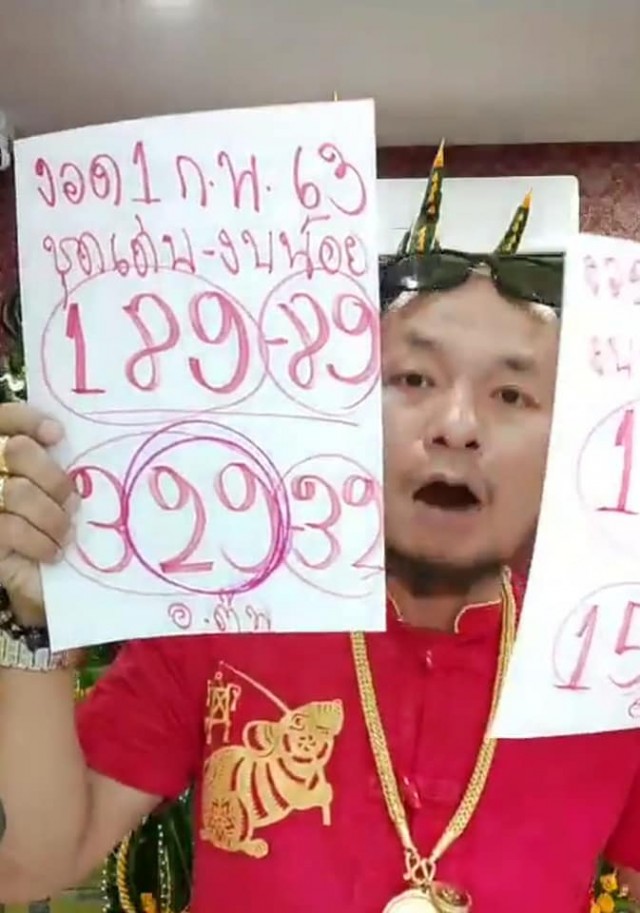 งวด 1 ก.พ. 63
ชุดเด่น-งบน้อย
189-89
329-32
อ.ตั้ม
งวด
งบ
1
15